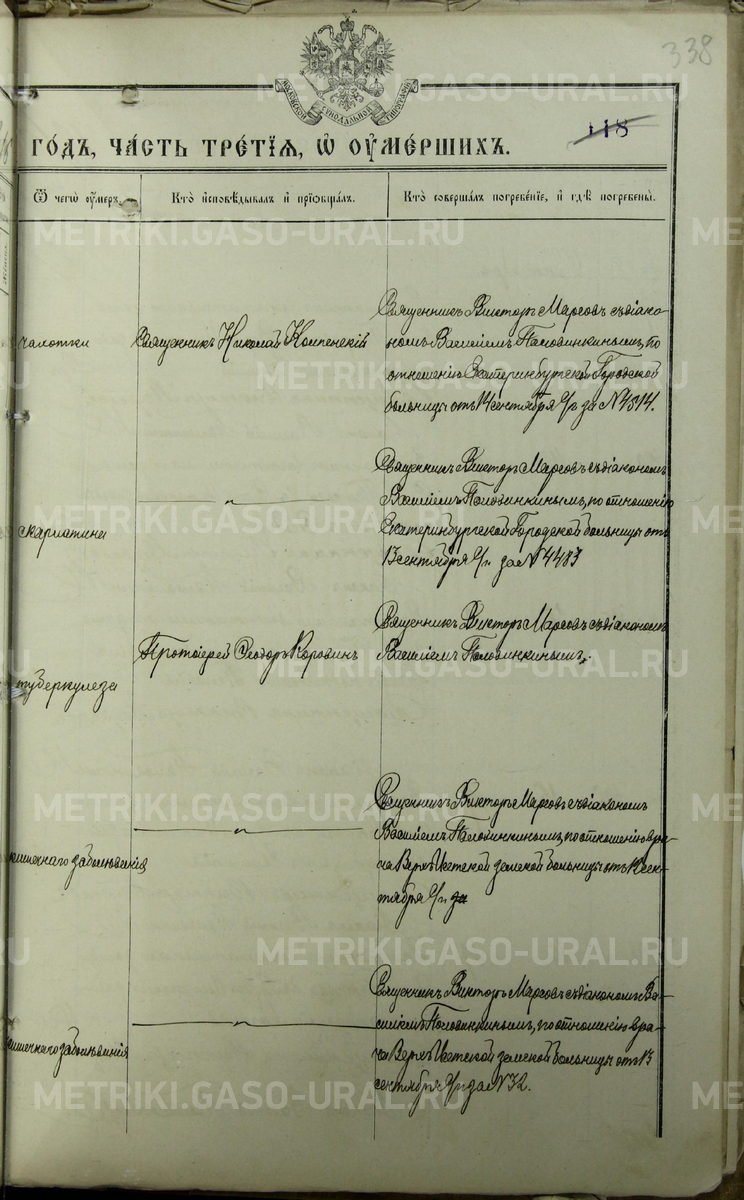 338
118
МОСКОВСКОЙ СѴНОДАЛЬНОЙ ТИПОГРАФІИ
ГО́ДЪ, ЧА́СТЬ ТРЕ́ТІЯ, Ѽ ОУМЕ́РШИХЪ.
Ѿ чегѡ̀ оу҆́меръ.
Кто̀ и҆сповѣ́дывалъ и҆ прїѡбща́лъ.
Кто̀ соверша́лъ погребе́нїе, и҆ гдѣ̀ погребены̀.
чахотки
Священникъ Николай
Священникъ Викторъ Марсовъ съ діако-
номъ Василіемъ Половинкинымъ, по
отношенію Екатеринбургской Городской
больницы отъ 14 сентября с/г за №4514.
скарлатина
—„—
Священникъ Викторъ Марсовъ съ діакономъ
Василіемъ Половинкинымъ, по отношенію
Екатеринбургской Городской больницы отъ
13 сентября с/г. за №4483
туберкулеза
Протоіерей Ѳеодоръ Коровинъ
Священникъ Викторъ Марсовъ съ діакономъ
Василіемъ Половинкинымъ.
кишечнаго заболѣванія
—„—
Священникъ Викторъ Марсовъ съ діакономъ
Василіемъ Половинкинымъ, по отношенію вра-
ча Верхъ Исетской земской больницы отъ сен-
тября с/г. за
кишечнаго заболѣванія
—„—
Священникъ Викторъ Марсовъ съ діакономъ Ва-
силіемъ Половинкинымъ, по отношенію вра-
ча Верхъ Исетской земской больницы отъ 13
сентября с/г за №32.
METRIKI.GASO-URAL.RU